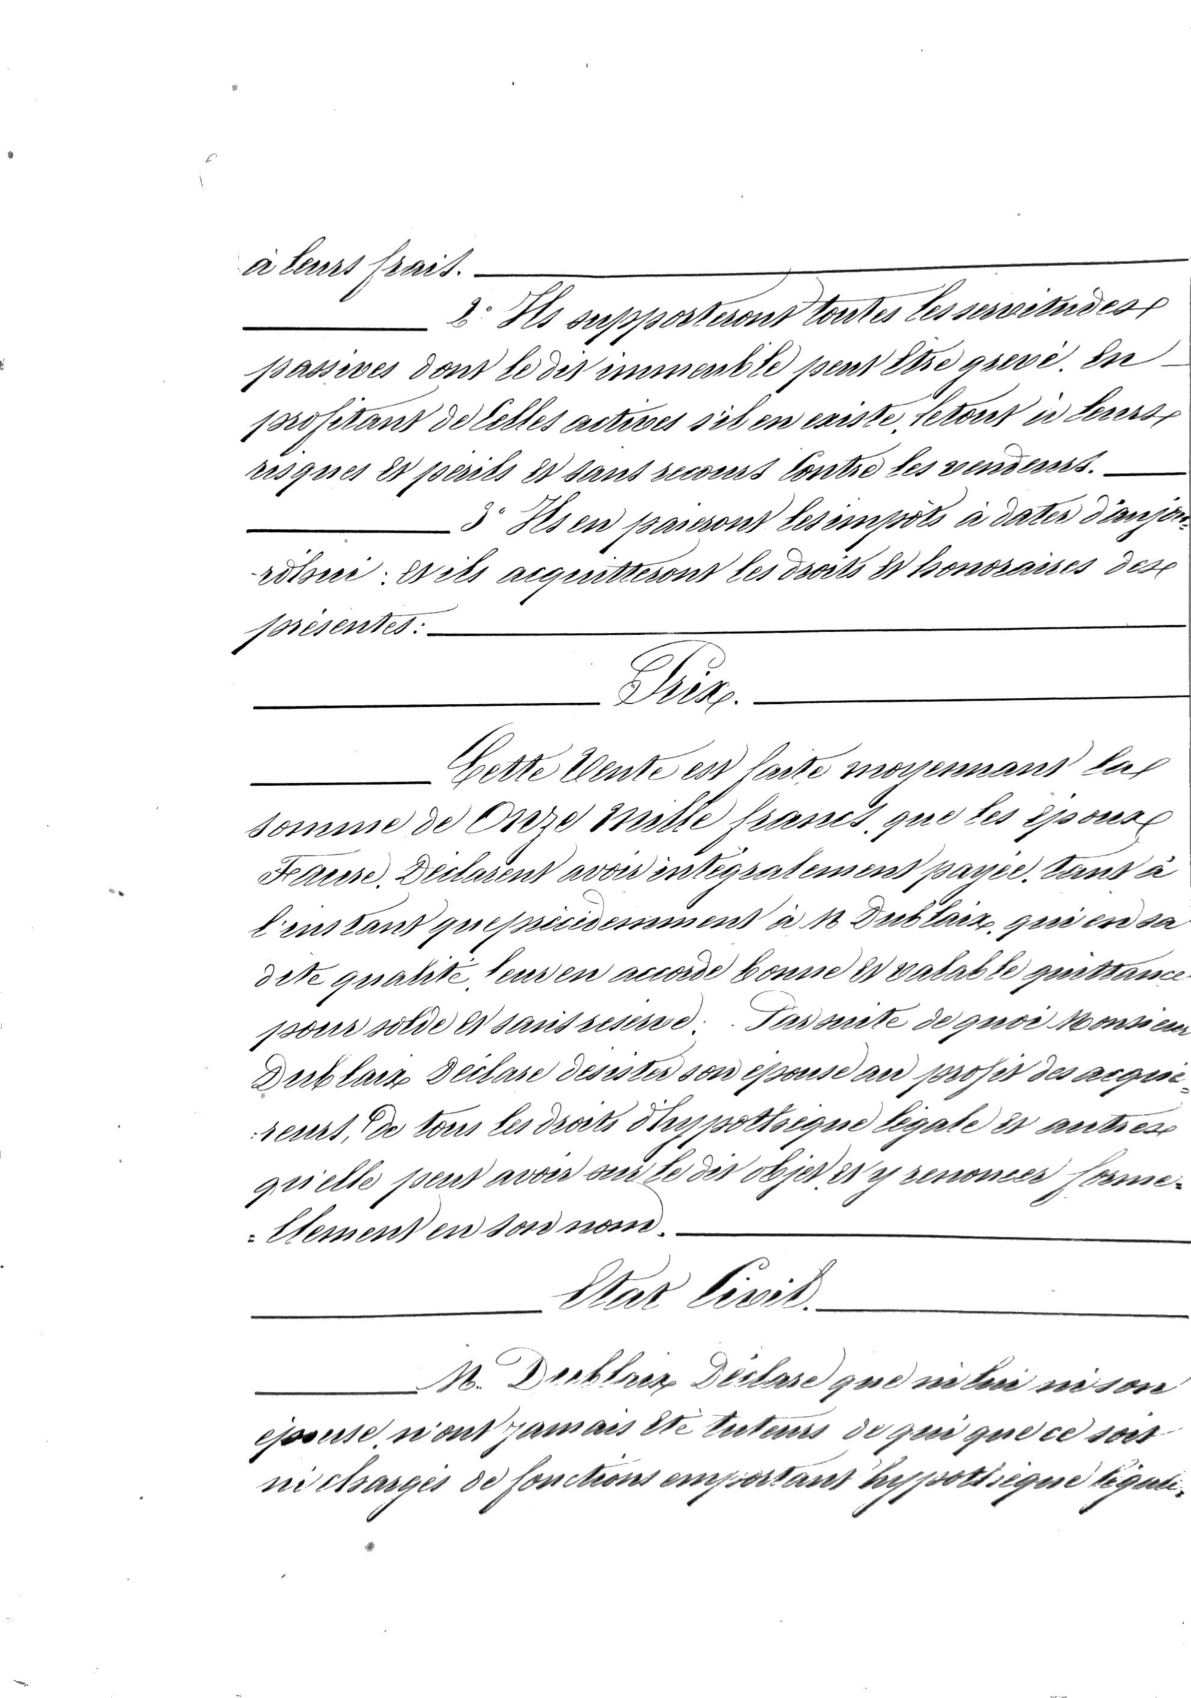 à leurs frais.
2° Ils supporteront toutes les servitudes
passives dont le dit immeuble peut être grevé, en
profitant de celles actives s'il en existe, le tout à leurs
risques et périls et sans recours contre les vendeurs.
3° Ils en paieront les impôts à dater d'aujou-
rd'hui ; et ils acquitteront les droits et honoraires des
présentes :
Prix.
Cette Vente est faite moyennant la
somme de Onze Mille francs, que les époux
Faure, Déclarent avoir intégralement payée, tant à
l'instant que précédemment à M Dublaix, qui en sa
dite qualité, leur en accorde bonne et valable quittance
pour solde et sans réserve. Par suite de quoi Monsieur
Dublaix Déclare désister son épouse au profit des acqué-
:reurs, de tous les droits d'hypothèque légale et autres
qu'elle peut avoir sur le dit objet, et y renoncer forme-
=llement en son nom.
Etat Civil.
M. Dublaix Déclare que ni lui ni son
épouse, n'ont jamais été tuteurs de qui que ce soit
ni chargés de fonctions emportant hypothèque légale.